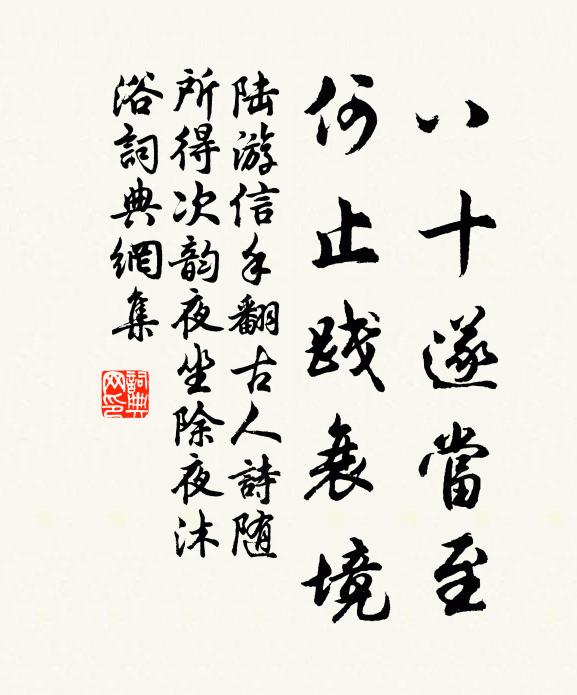 八十遂當至
何止踐衰境
陆游信手翻古人詩随
所得次韵夜坐除夜沐
浴詞典網集
詞典
网印